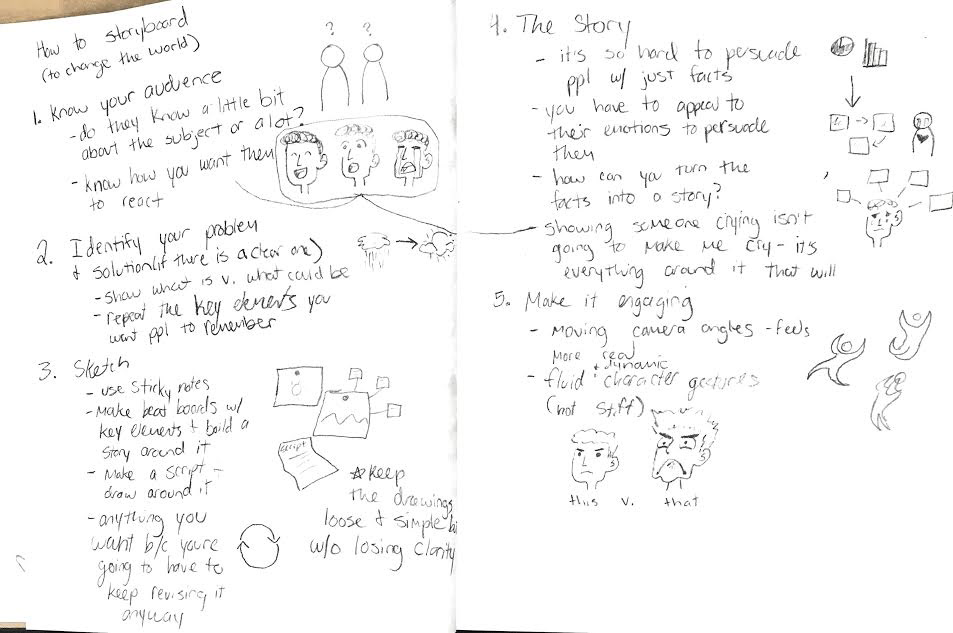 How to storyboard
(to change the world)
? ?
1. Know your audience
- do they know a little bit
about the subject or a lot?
- know how you want them
to react
2. Identify your problem
& solution (if there is a clear one)
- show what is v. what could be
- repeat the key elements you
want ppl to remember
3. Sketch
- use sticky notes
- Make beat boards w/
key elements + build a
story around it
- Make a script -
draw around it
- anything you
want b/c you're
going to have to
keep revising it
anyway
script
keep
the drawings
loose & simple
w/o losing clarity
4. The Story
- it's so hard to persuade
ppl w/ just facts
- you have to appeal to
their emotions to persuade
them
- how can you turn the
facts into a story?
- showing someone crying isn't
going to make me cry - its
everything around it that will
5. Make it engaging
- Moving camera angles - feels
more real
+ dynamic
- fluid character gestures
(not stiff)
this v. that